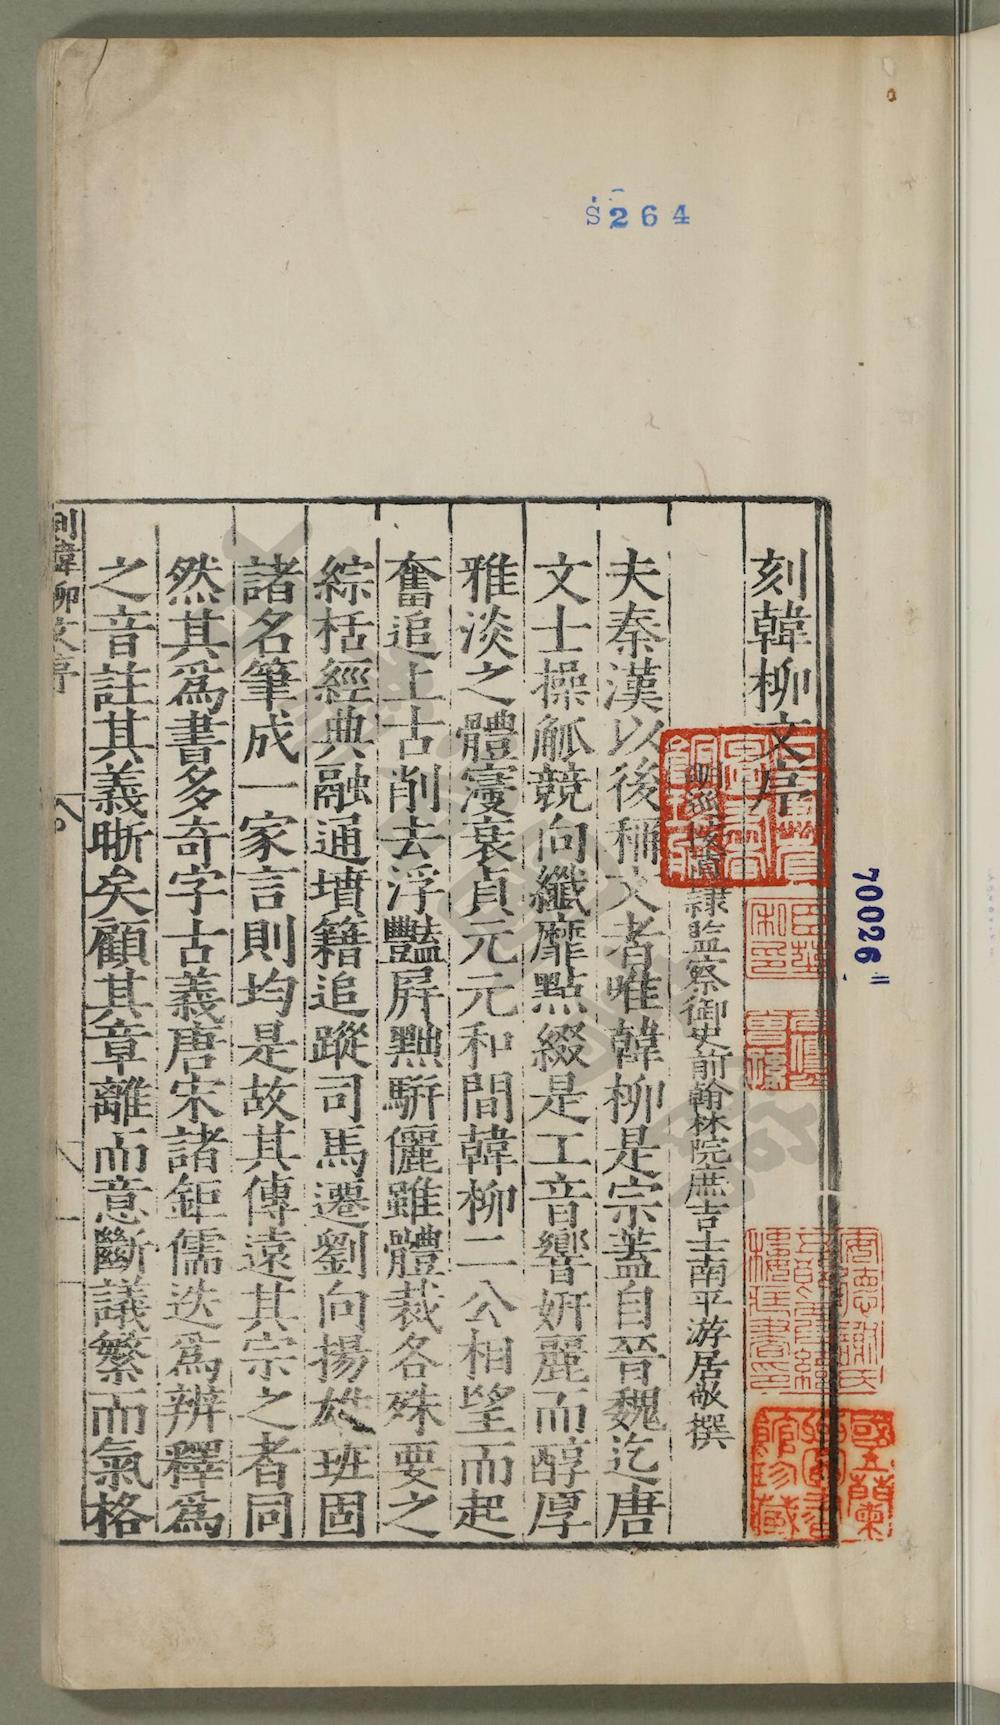 S264
70026
刻韓柳文序
明巡按直隸監察御史前翰林院庶吉士南平游居敬撰
夫秦漢以後稱文者唯韓柳是宗蓋自晉魏迄唐
文士操觚競向纖靡點綴是工音響妍麗而醇厚
雅淡之體寖衰貞元元和間韓柳二公相望而起
奮追上古削去浮豔屛黜騈儷雖體裁各殊要之
綜栝經典融通墳籍追蹤司馬遷劉向揚雄班固
諸名筆成一家言則均是故其傳遠其宗之者同
然其爲書多奇字古義唐宋諸鉅儒迭爲辨釋爲
之音註其義晰矣顧其章離而意斷議繁而氣格
刻韓柳文序